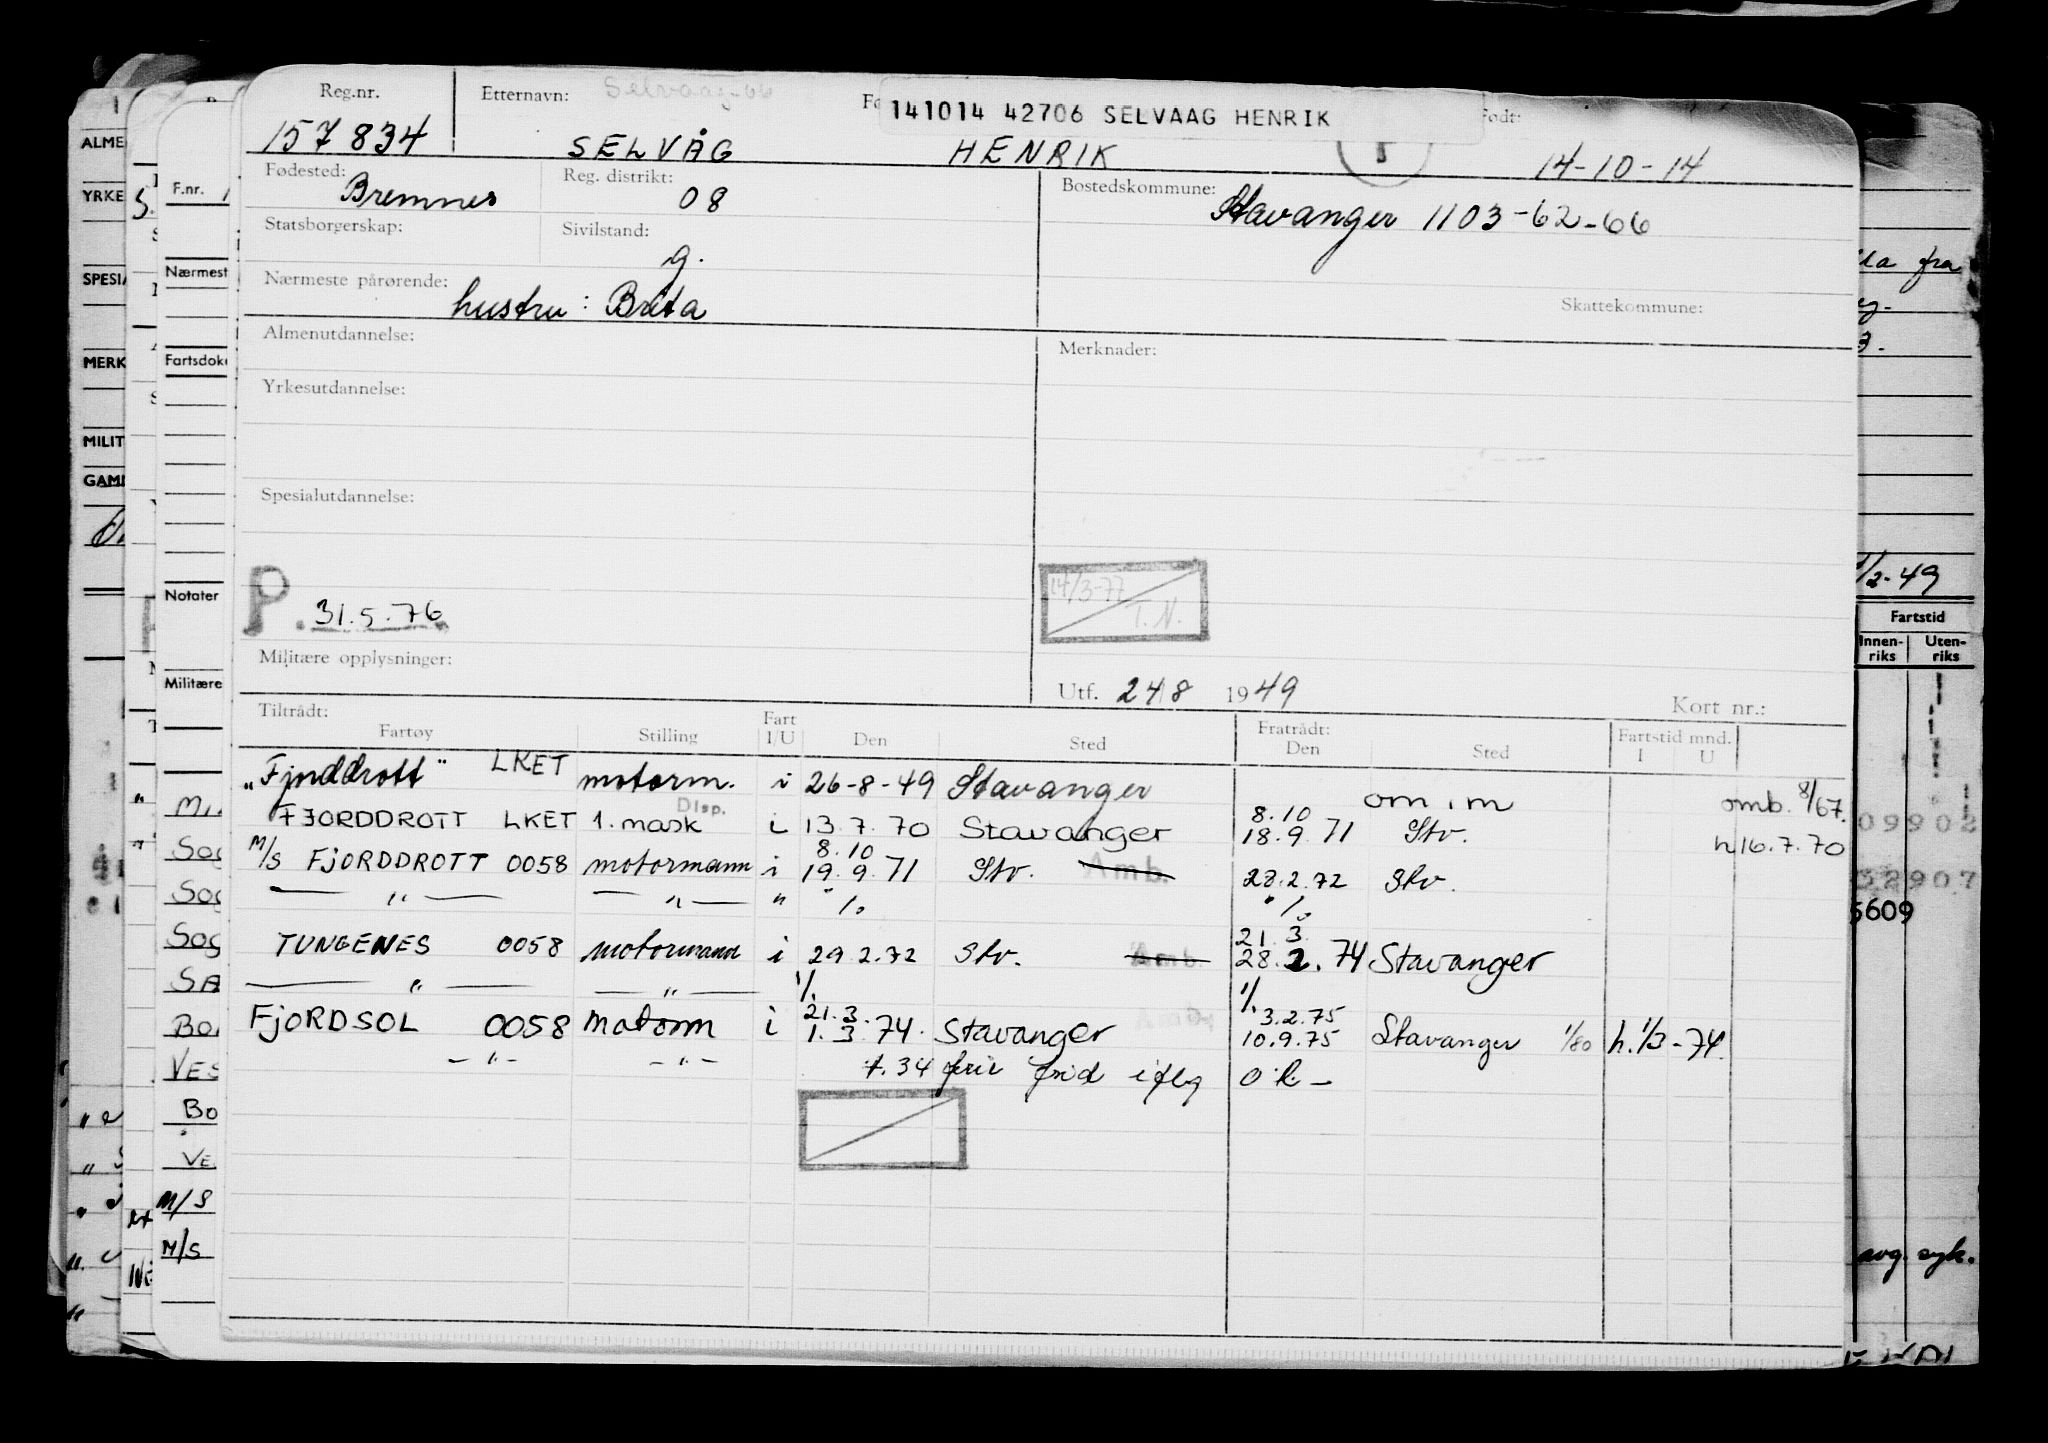 Reg.nr. Etternavn: Selvaag-66 141014 42706 SELVAAG HENRIK Født:
157834 SELVÅG HENRIK 14-10-14
Fødested: Bremnes Reg. distrikt: 08 Bostedskommune: Stavanger 1103-62-66
Statsborgerskap: Sivilstand: g.
Nærmeste pårørende: hustru: Brita Skattekommune:
Almenutdannelse: Merknader:
Yrkesutdannelse:
Spesialutdannelse:
P. 31.5.76 14/3-77 T.N.
Militære opplysninger:
Utf. 24/8 1949 Kort nr.:
Tiltrådt: Fratrådt:
Fartøy Stilling Fart I/U Den Sted Den Sted Fartstid mnd. I U
"Fjorddrott" LKET motorm. i 26-8-49 Stavanger om i m omb. 8/67.
FJORDDROTT LKET 1. mask Disp. i 13.7.70 Stavanger 8.10 18.9.71 Stv. h16.7.70
M/S FJORDDROTT 0058 motormann i 8.10 19.9.71 Stv. Amb. 28.2.72 Stv.
— " — — " — " " 1/. " 1/.
TUNGENES 0058 motormann i 29.2.72 Stv. Amb. 21.3. 28.2.74 Stavanger
— " — — " — 1/. 1/.
FJORDSOL 0058 motorm i 21.3. 1.3.74. Stavanger 3.2.75 10.9.75 Stavanger 1/80 h.1/3-74.
- " - - " -
ALMEN
YRKE
SPESIA
MERK
MILIT
F.nr.
Nærmest
Fartsdoku
Notater
Militære
Sog
Sog
Sog
Bo
VES
Bo
VE
M/S
M/S
fra
/2-49
Fartstid
Innenriks Utenriks
09902
32907
5609
avg. syk.